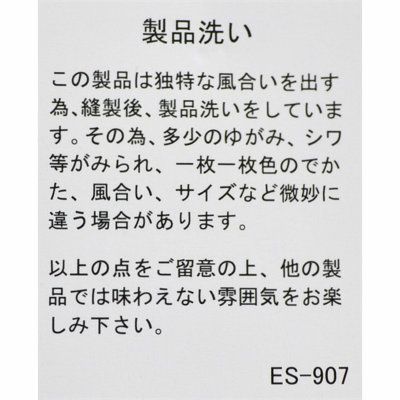 製品洗い
この製品は独特な風合いを出す
為、縫製後、製品洗いをしていま
す。その為、多少のゆがみ、シワ
等がみられ、一枚一枚色のでか
た、風合い、サイズなど微妙に
違う場合があります。
以上の点をご留意の上、他の製
品では味わえない雰囲気をお楽
しみ下さい。
ES-907